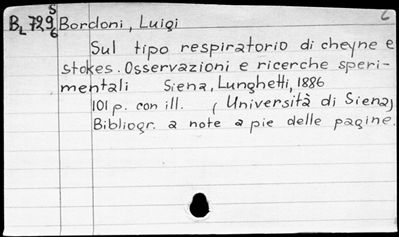 B_L 729 5/6 Bordoni, Luigi
Sul tipo respiratorio di cheyne e
stokes. Osservazioni e ricerche speri-
mentali Siena, Lunghetti, 1886
101 p. con ill. (Università di Siena)
Bibliogr. a note a pie delle pagine.